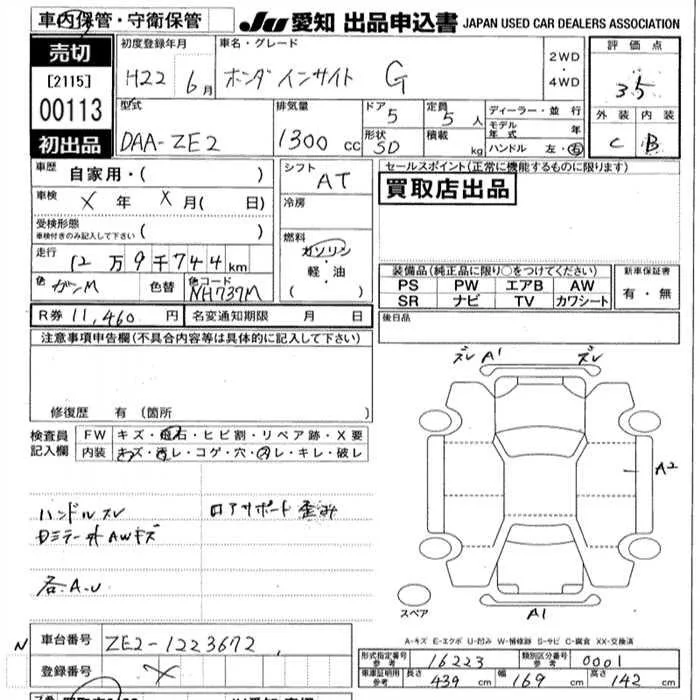 車内保管・守衛保管
JU 愛知 出品申込書 JAPAN USED CAR DEALERS ASSOCIATION
売切
[2115]
00113
初出品
初度登録年月 車名・グレード 2WD・4WD 評価点
H22 6月 ホンダ インサイト G 3.5
型式 排気量 ドア 定員 ディーラー・並行 外装 内装
DAA-ZE2 1300cc 5 5人 モデル年式 年 C B
形状 SD 積載 kg ハンドル 左・右
車歴 自家用・( )
車検 X年 X月( 日)
受検形態 車検付きのみ記入して下さい ( )
走行 12万9千744km
色 ガンM 色替 色コード NH737M
シフト AT
冷房
燃料 ガソリン・軽・油 ( )
セールスポイント(正常に機能するものに限ります)
買取店出品
装備品(純正品に限り○をつけてください) 新車保証書
PS PW エアB AW 有・無
SR ナビ TV カワシート
R券 11,460円 名変通知期限 月 日
後日品
注意事項申告欄(不具合内容等は具体的に記入して下さい)
修復歴 有 (箇所 )
検査員記入欄 FW キズ・飛石・ヒビ割・リペア跡・X要
内装 キズ・汚レ・コゲ・穴・スレ・キレ・破レ
ハンドルスレ ロアサポート歪み
Dミラー外 AWキズ
各A.U
ズレ A1 ズレ
A2
スペア A1
A-キズ E-エクボ U-凹み W-補修跡 S-サビ C-腐食 XX-交換済
N 車台番号 ZE2-1223672
登録番号 X
形式指定番号 参考 16223 類別区分番号 参考 0001
車庫証明用 参考 長さ 439cm 幅 169cm 高さ 142cm